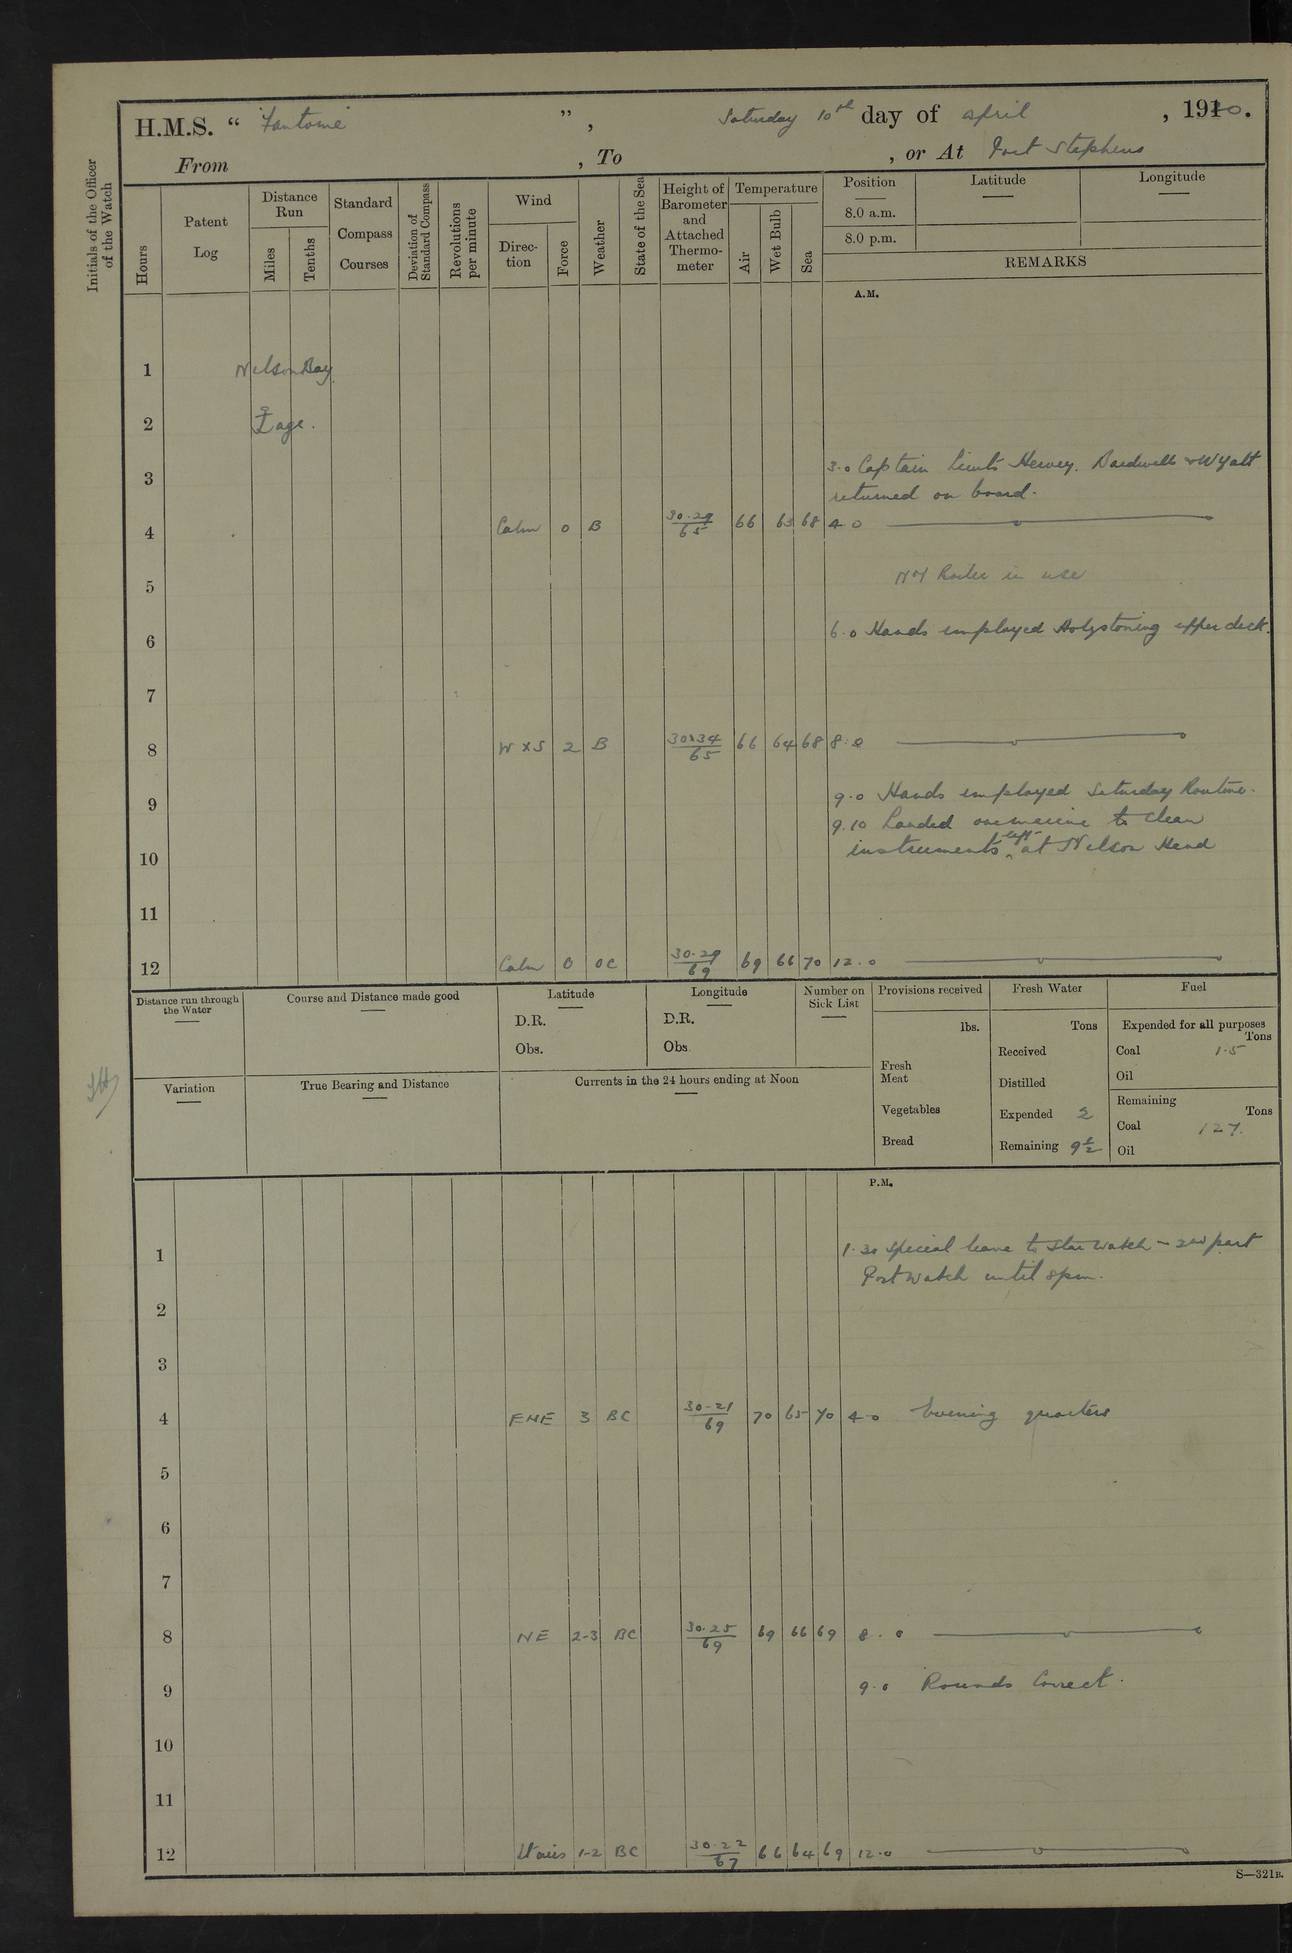 H.M.S. “ Fantome ” , Saturday 10th day of april , 1920.
From , To , or At Port Stephens
Initials of the Officer of the Watch
Hours
Patent Log
Distance Run
Miles
Tenths
Standard Compass Courses
Deviation of Standard Compass
Revolutions per minute
Wind
Direction
Force
Weather
State of the Sea
Height of Barometer and Attached Thermometer
Temperature
Air
Wet Bulb
Sea
Position
8.0 a.m.
8.0 p.m.
Latitude
Longitude
REMARKS
A.M.
1 Nelson Bay
2 age.
3 3.0 Captain Lieuts Hervey, Bardwell & Wyatt
returned on board.
4 Calm 0 B 30.29/65 66 63 68 4.0
5 No 1 Boiler in use
6 6.0 Hands employed Holystoning upper deck.
7
8 W x S 2 B 30.34/65 66 64 68 8.0
9 9.0 Hands employed Saturday Routine.
9.10 Landed one marine to clean
10 instruments left at Nelson Head
11
12 Calm 0 OC 30.29/69 69 66 70 12.0
Distance run through the Water
Course and Distance made good
Latitude
D.R.
Obs.
Longitude
D.R.
Obs.
Number on Sick List
Provisions received
lbs.
Fresh Meat
Vegetables
Bread
Fresh Water
Tons
Received
Distilled
Expended 2
Remaining 9½
Fuel
Expended for all purposes
Tons
Coal 1.5
Oil
Remaining
Tons
Coal 127.
Oil
Variation
True Bearing and Distance
Currents in the 24 hours ending at Noon
P.M.
1 1.30 Special leave to Star watch – 2nd part
Port watch until 8pm.
2
3
4 ENE 3 BC 30.21/69 70 65 70 4.0 Evening quarters
5
6
7
8 NE 2-3 BC 30.25/69 69 66 69 8.0
9 9.0 Rounds Correct.
10
11
12 Lt airs 1-2 BC 30.22/67 66 64 69 12.0
S—321B.